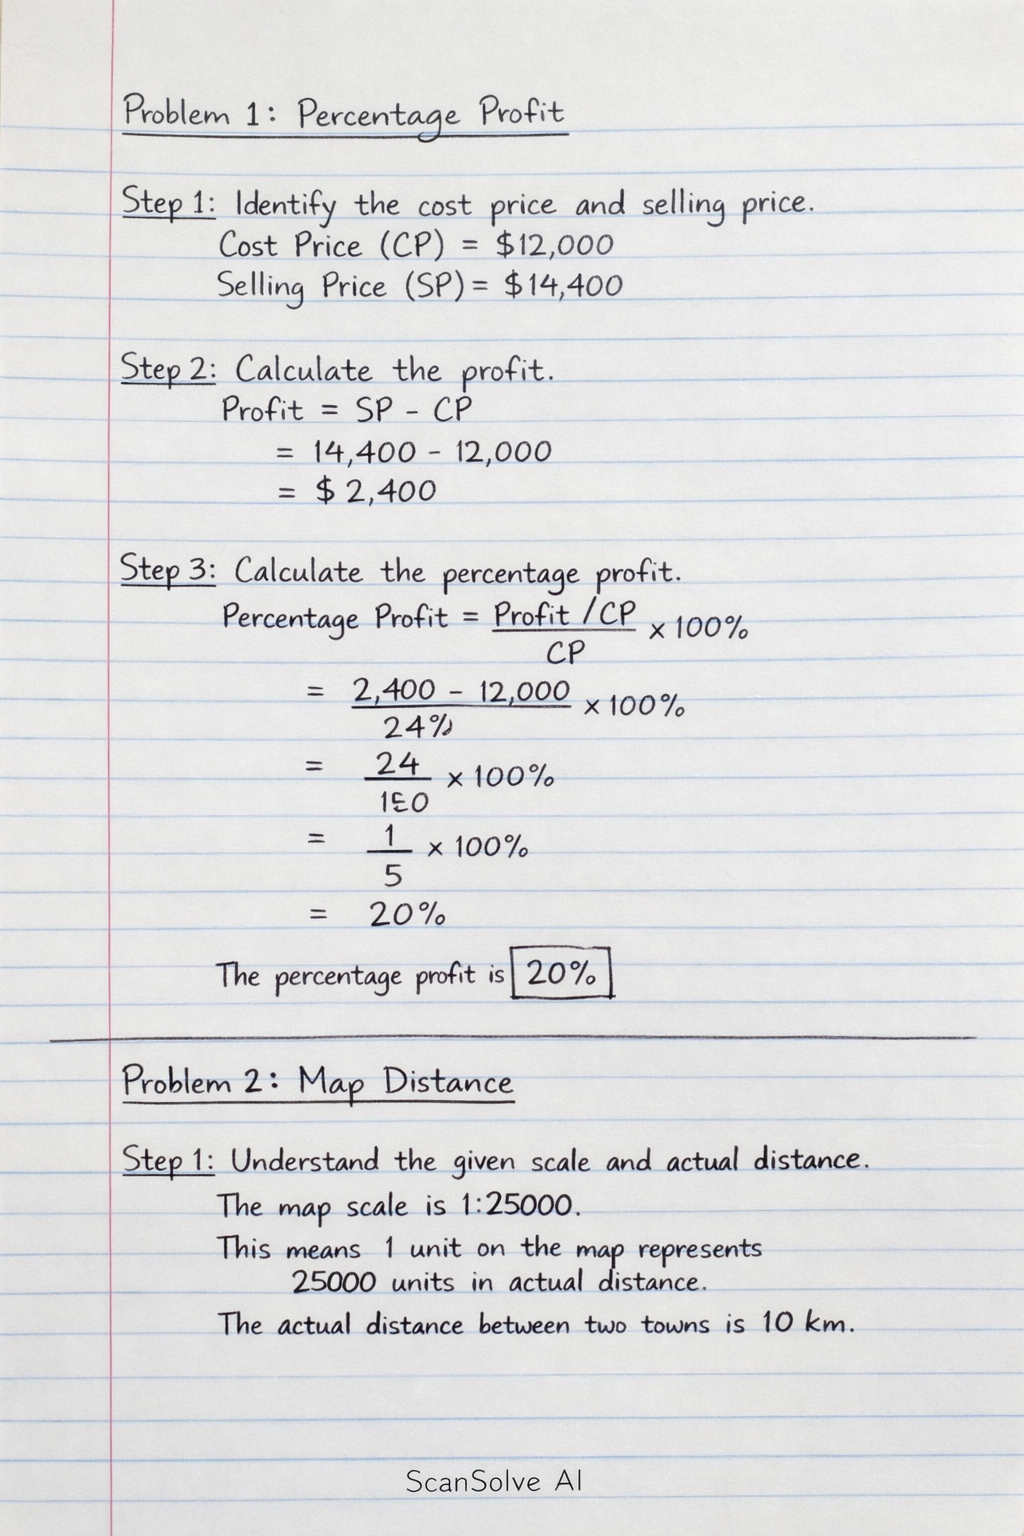 Problem 1: Percentage Profit
Step 1: Identify the cost price and selling price.
Cost Price (CP) = $12,000
Selling Price (SP) = $14,400
Step 2: Calculate the profit.
Profit = SP - CP
= 14,400 - 12,000
= $ 2,400
Step 3: Calculate the percentage profit.
Percentage Profit = Profit / CP x 100%
CP
= 2,400 - 12,000 x 100%
24%
= 24 x 100%
= 1 x 100%
5
= 20%
The percentage profit is 20%
Problem 2: Map Distance
Step 1: Understand the given scale and actual distance.
The map scale is 1:25000.
This means 1 unit on the map represents
25000 units in actual distance.
The actual distance between two towns is 10 km.
ScanSolve AI